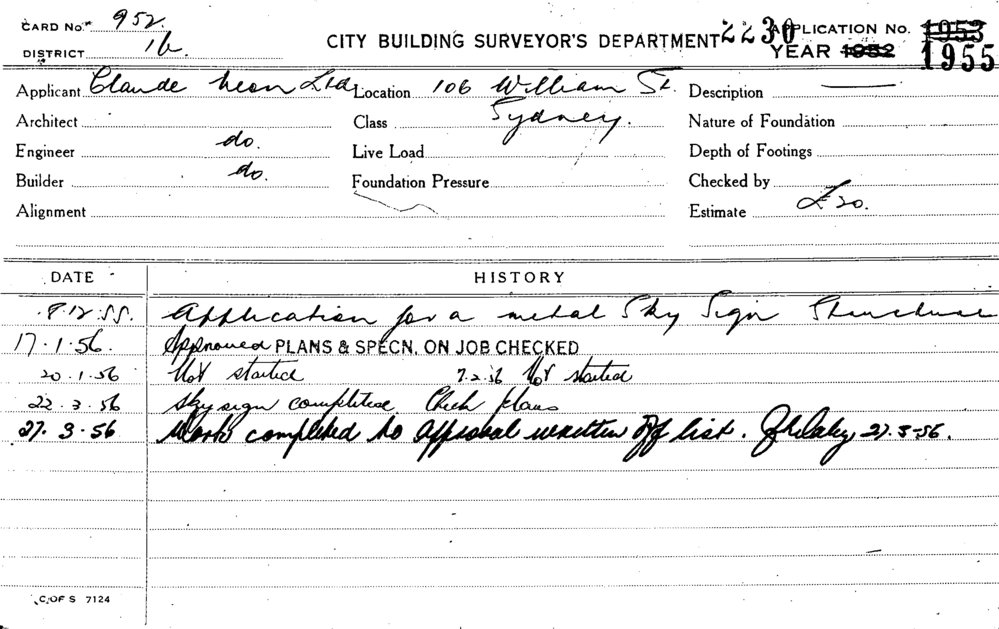 CARD No. 952.
DISTRICT 16
CITY BUILDING SURVEYOR'S DEPARTMENT 2230 APPLICATION No. 1953
YEAR 1952 1955
Applicant Claude Neon Ltd Location 106 William St. Description
Architect Class Sydney. Nature of Foundation
Engineer do. Live Load Depth of Footings
Builder do. Foundation Pressure Checked by
Alignment Estimate £20.
DATE HISTORY
8.12.55. Application for a metal Sky Sign Structure
17.1.56. Approved PLANS & SPECN. ON JOB CHECKED
20.1.56 Not started 7.2.56 Not started
22.3.56 Sky sign completed Check plans
27.3.56 Work completed to approval written off list. 27.3.56.
C. OF S 7124